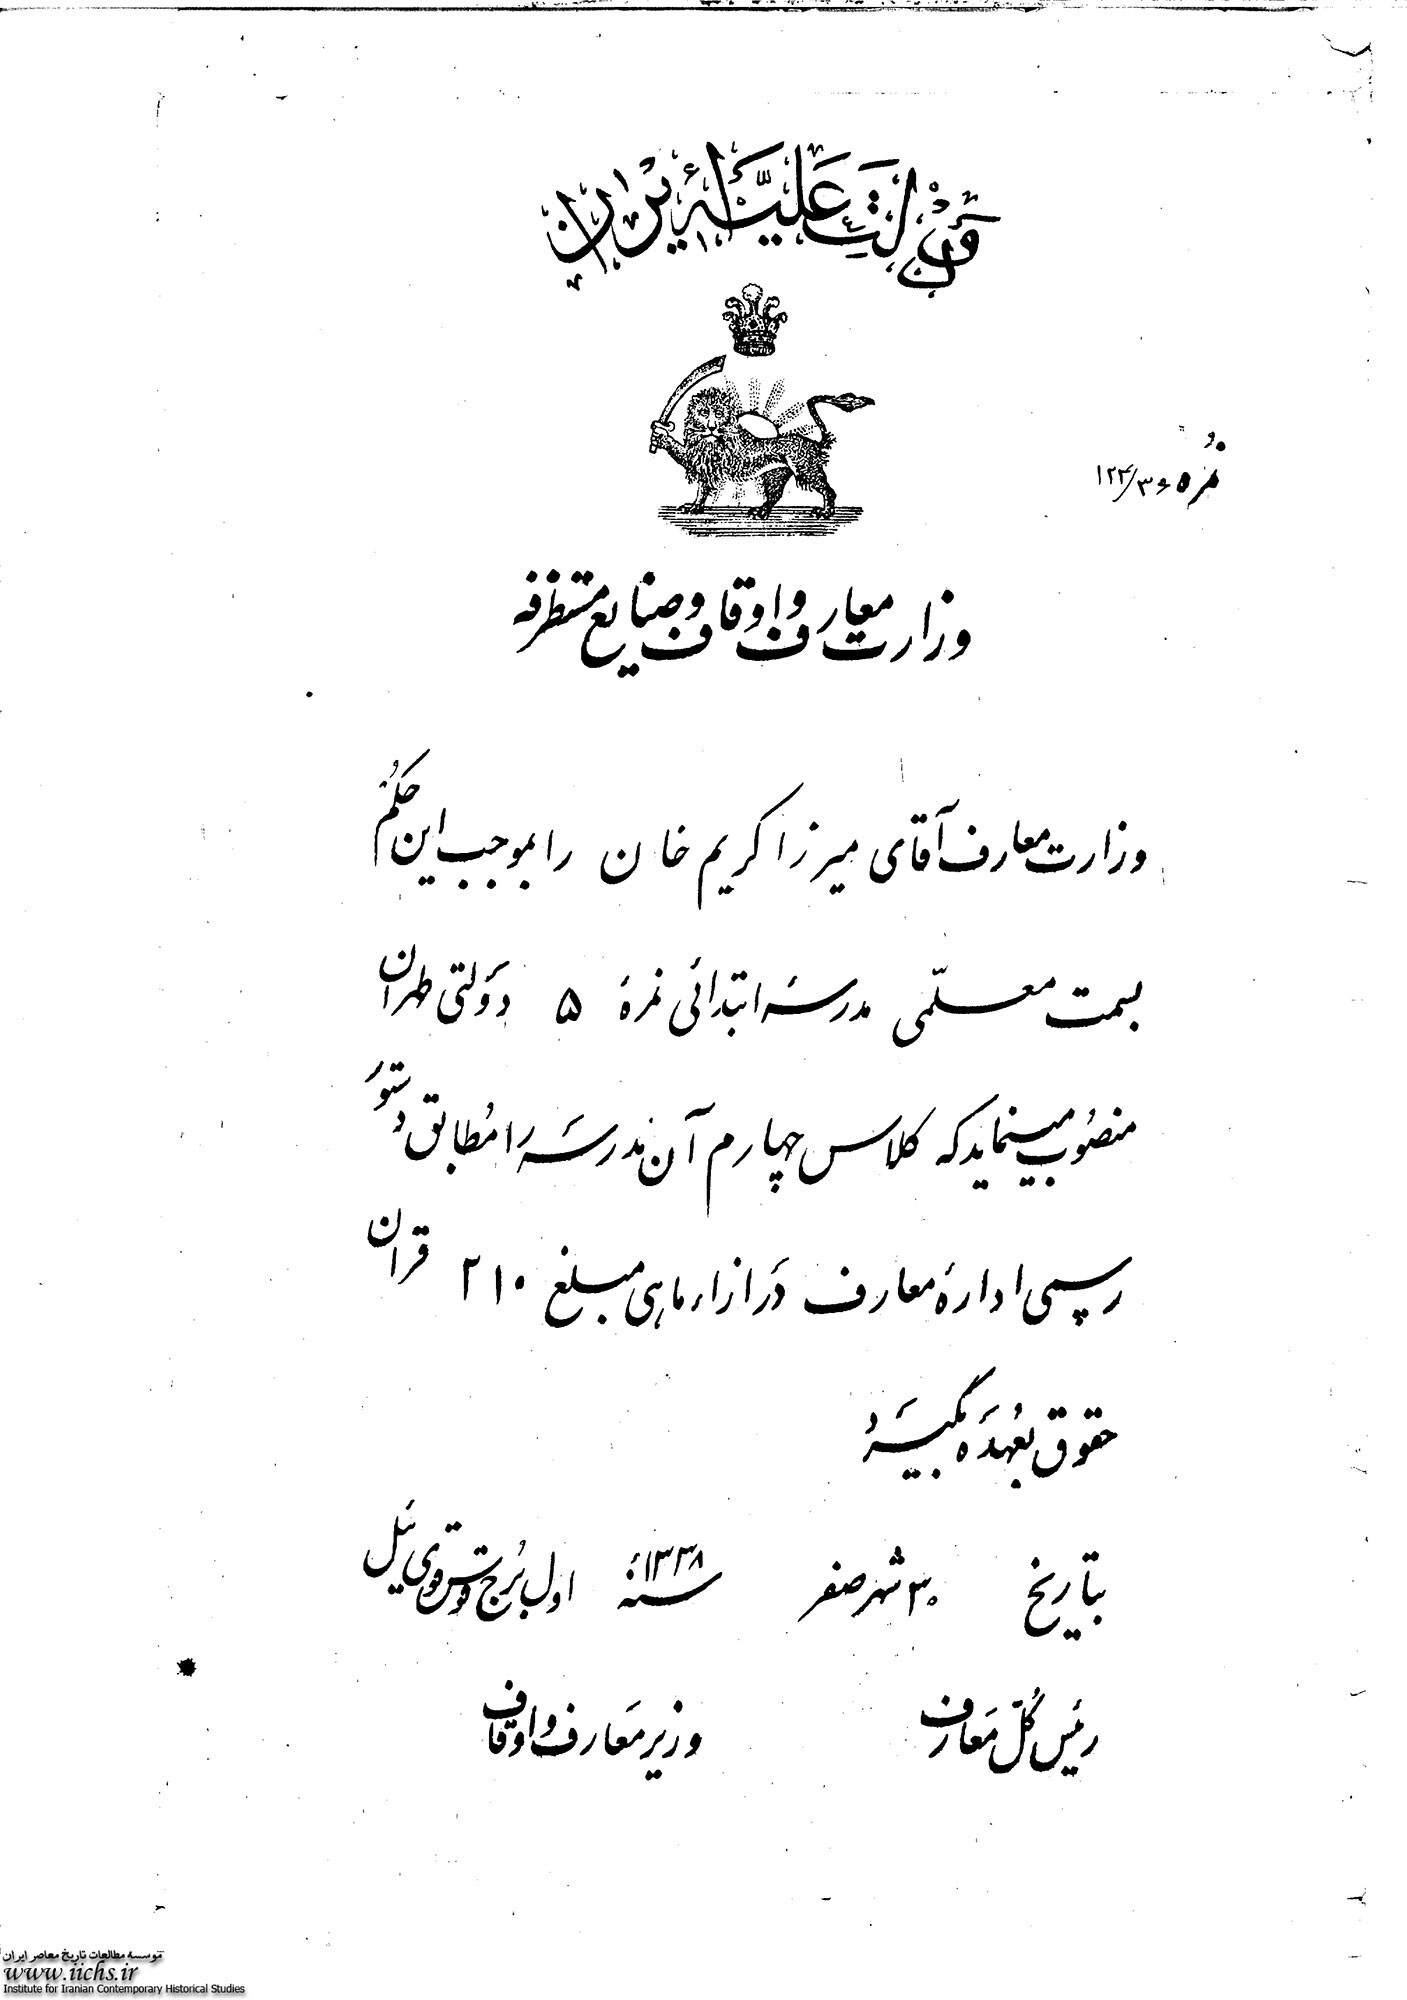 دولت علیّه ایران
نمره ۱۲۴/۳۰۶
وزارت معارف و اوقاف و صنایع مستظرفه
وزارت معارف آقای میرزا کریم خان را بموجب این حکم
بسمت معلّمی مدرسهٔ ابتدائی نمرهٔ ۵ دولتی طهران
منصوب مینماید که کلاس چهارم آن مدرسه را مطابق دستور
رسمی ادارهٔ معارف در ازاء ماهی مبلغ ۲۱۰ قران
حقوق بعهده بگیرد
بتاریخ ۳۰ شهر صفر سنهٔ ۱۳۳۸ اول برج قوس قوی ئیل
رئیس کلّ معارف وزیر معارف و اوقاف
موسسه مطالعات تاریخ معاصر ایران
www.iichs.ir
Institute for Iranian Contemporary Historical Studies